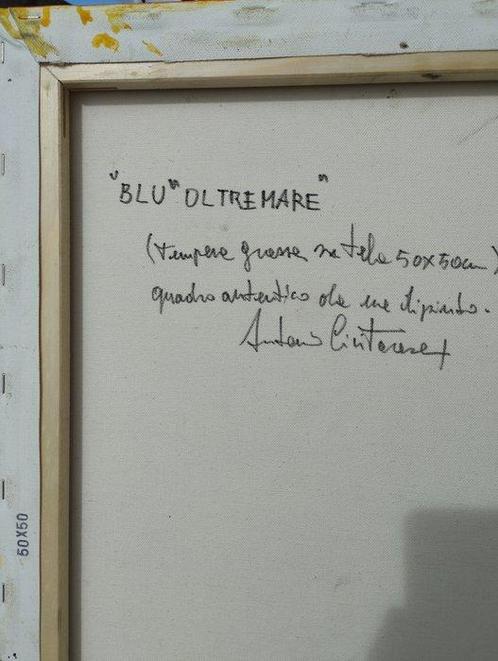 "BLU" OLTREMARE"
(tempera grassa su tela 50x50cm)
quadro autentico da me dipinto.
Antonio Ciritarese
50X50